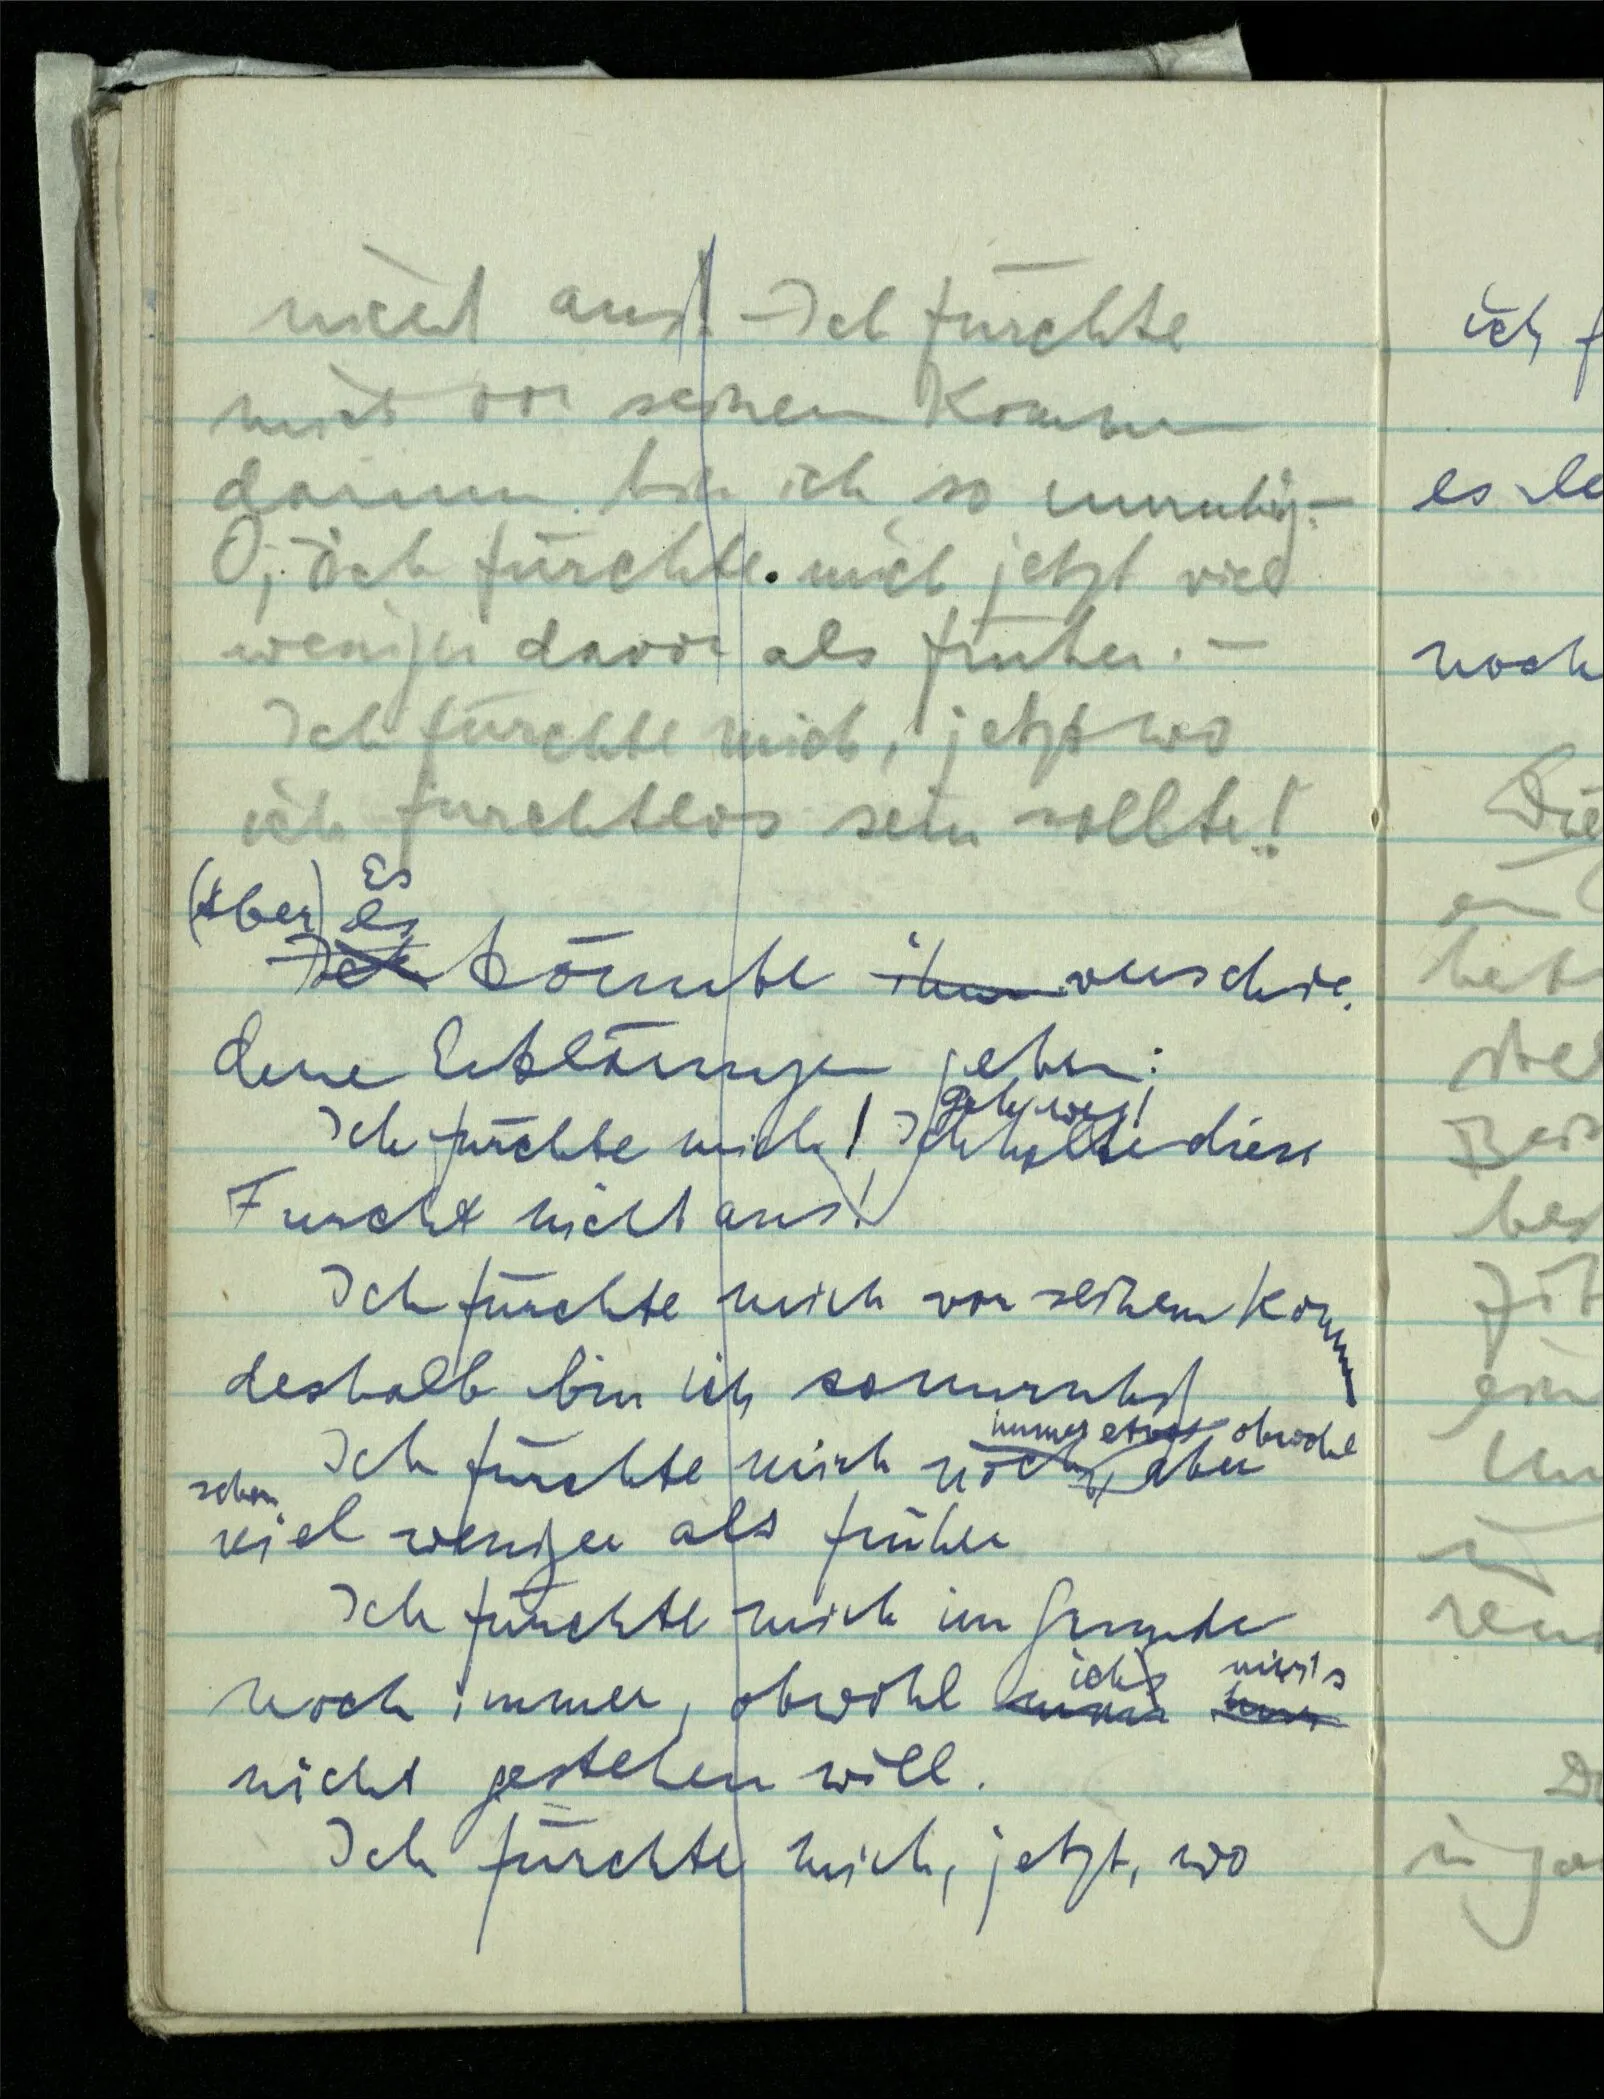 nicht aus! – Ich fürchte
mich vor seinem Kommen
darum bin ich so unruhig. –
O, ich fürchte mich jetzt viel
weniger davor als früher. –
Ich fürchte mich, jetzt wo
ich furchtlos sein sollte!
Es
(Aber) es
Ich könnte ihm verschie-
dene Erklärungen geben:
Geh weg!
Ich fürchte mich! Ich halte diese
Furcht nicht aus!
Ich fürchte mich vor seinem Kommen
deshalb bin ich so unruhig
immer etwas obwohl
Ich fürchte mich noch, aber
schon
viel weniger als früher
Ich fürchte mich im Grunde
ich's mir's
noch immer, obwohl
nicht gestehen will.
Ich fürchte mich, jetzt, wo
ich
noch